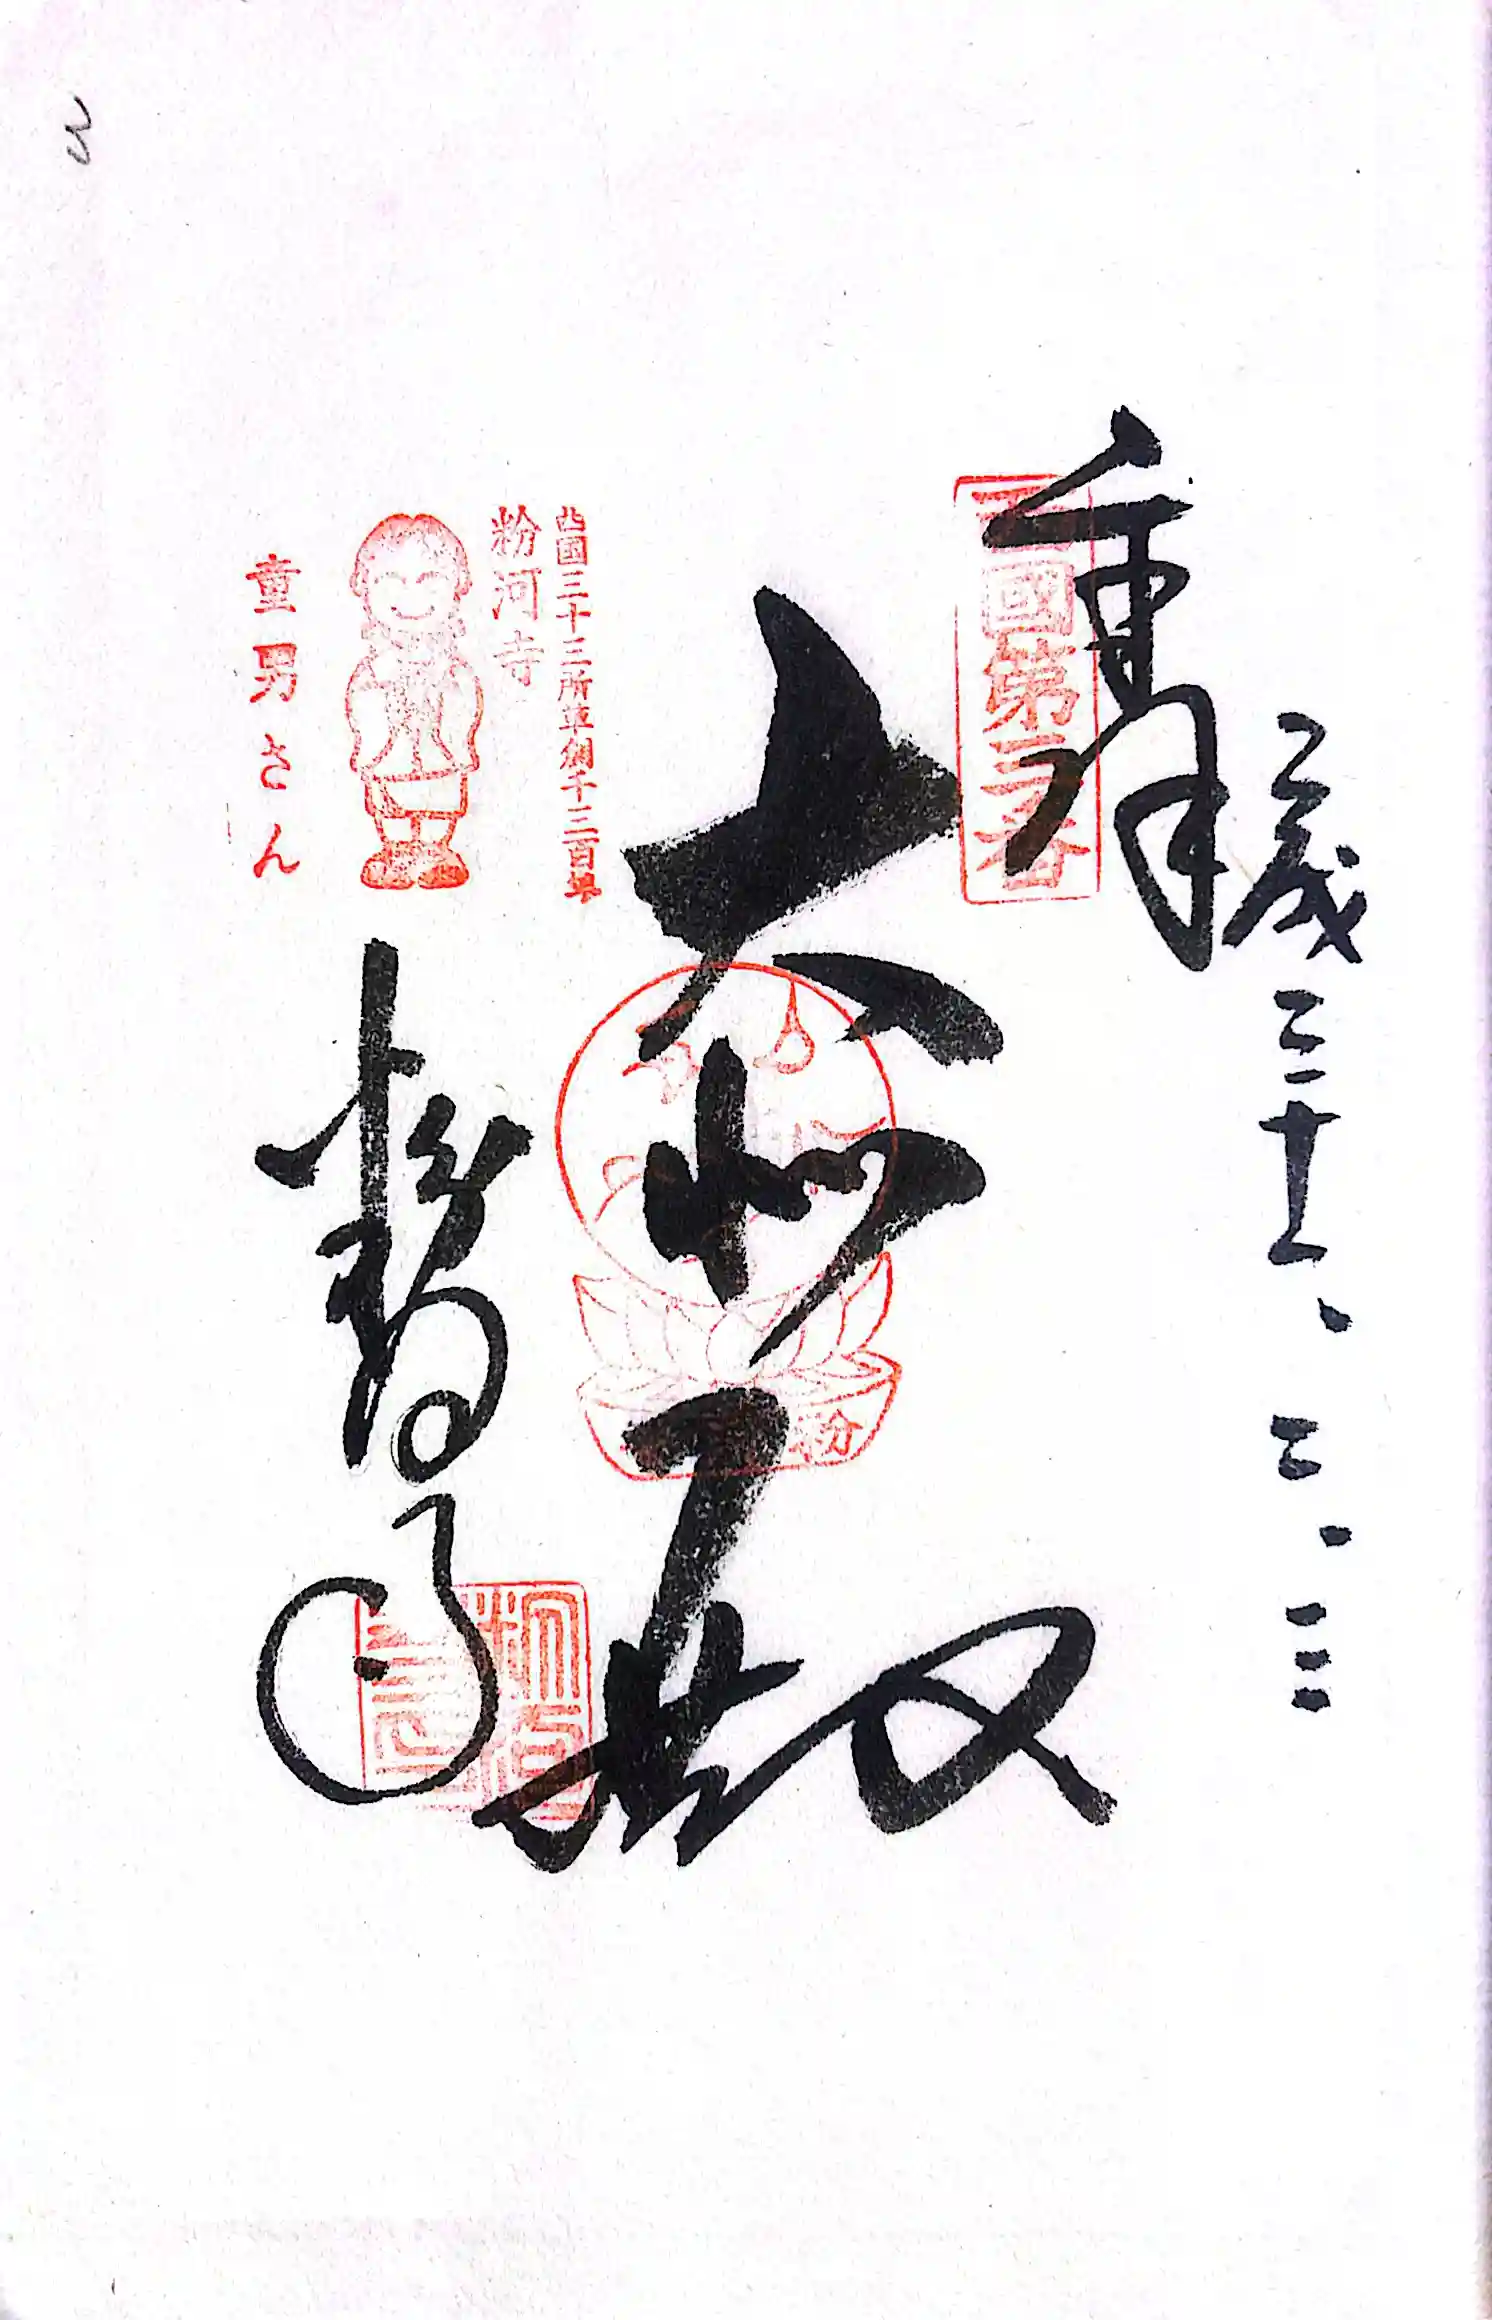 平成三十一、二、三
奉拝
西國第三番
大悲殿
粉
西国三十三所草創千三百年
粉河寺
童男さん
粉河寺